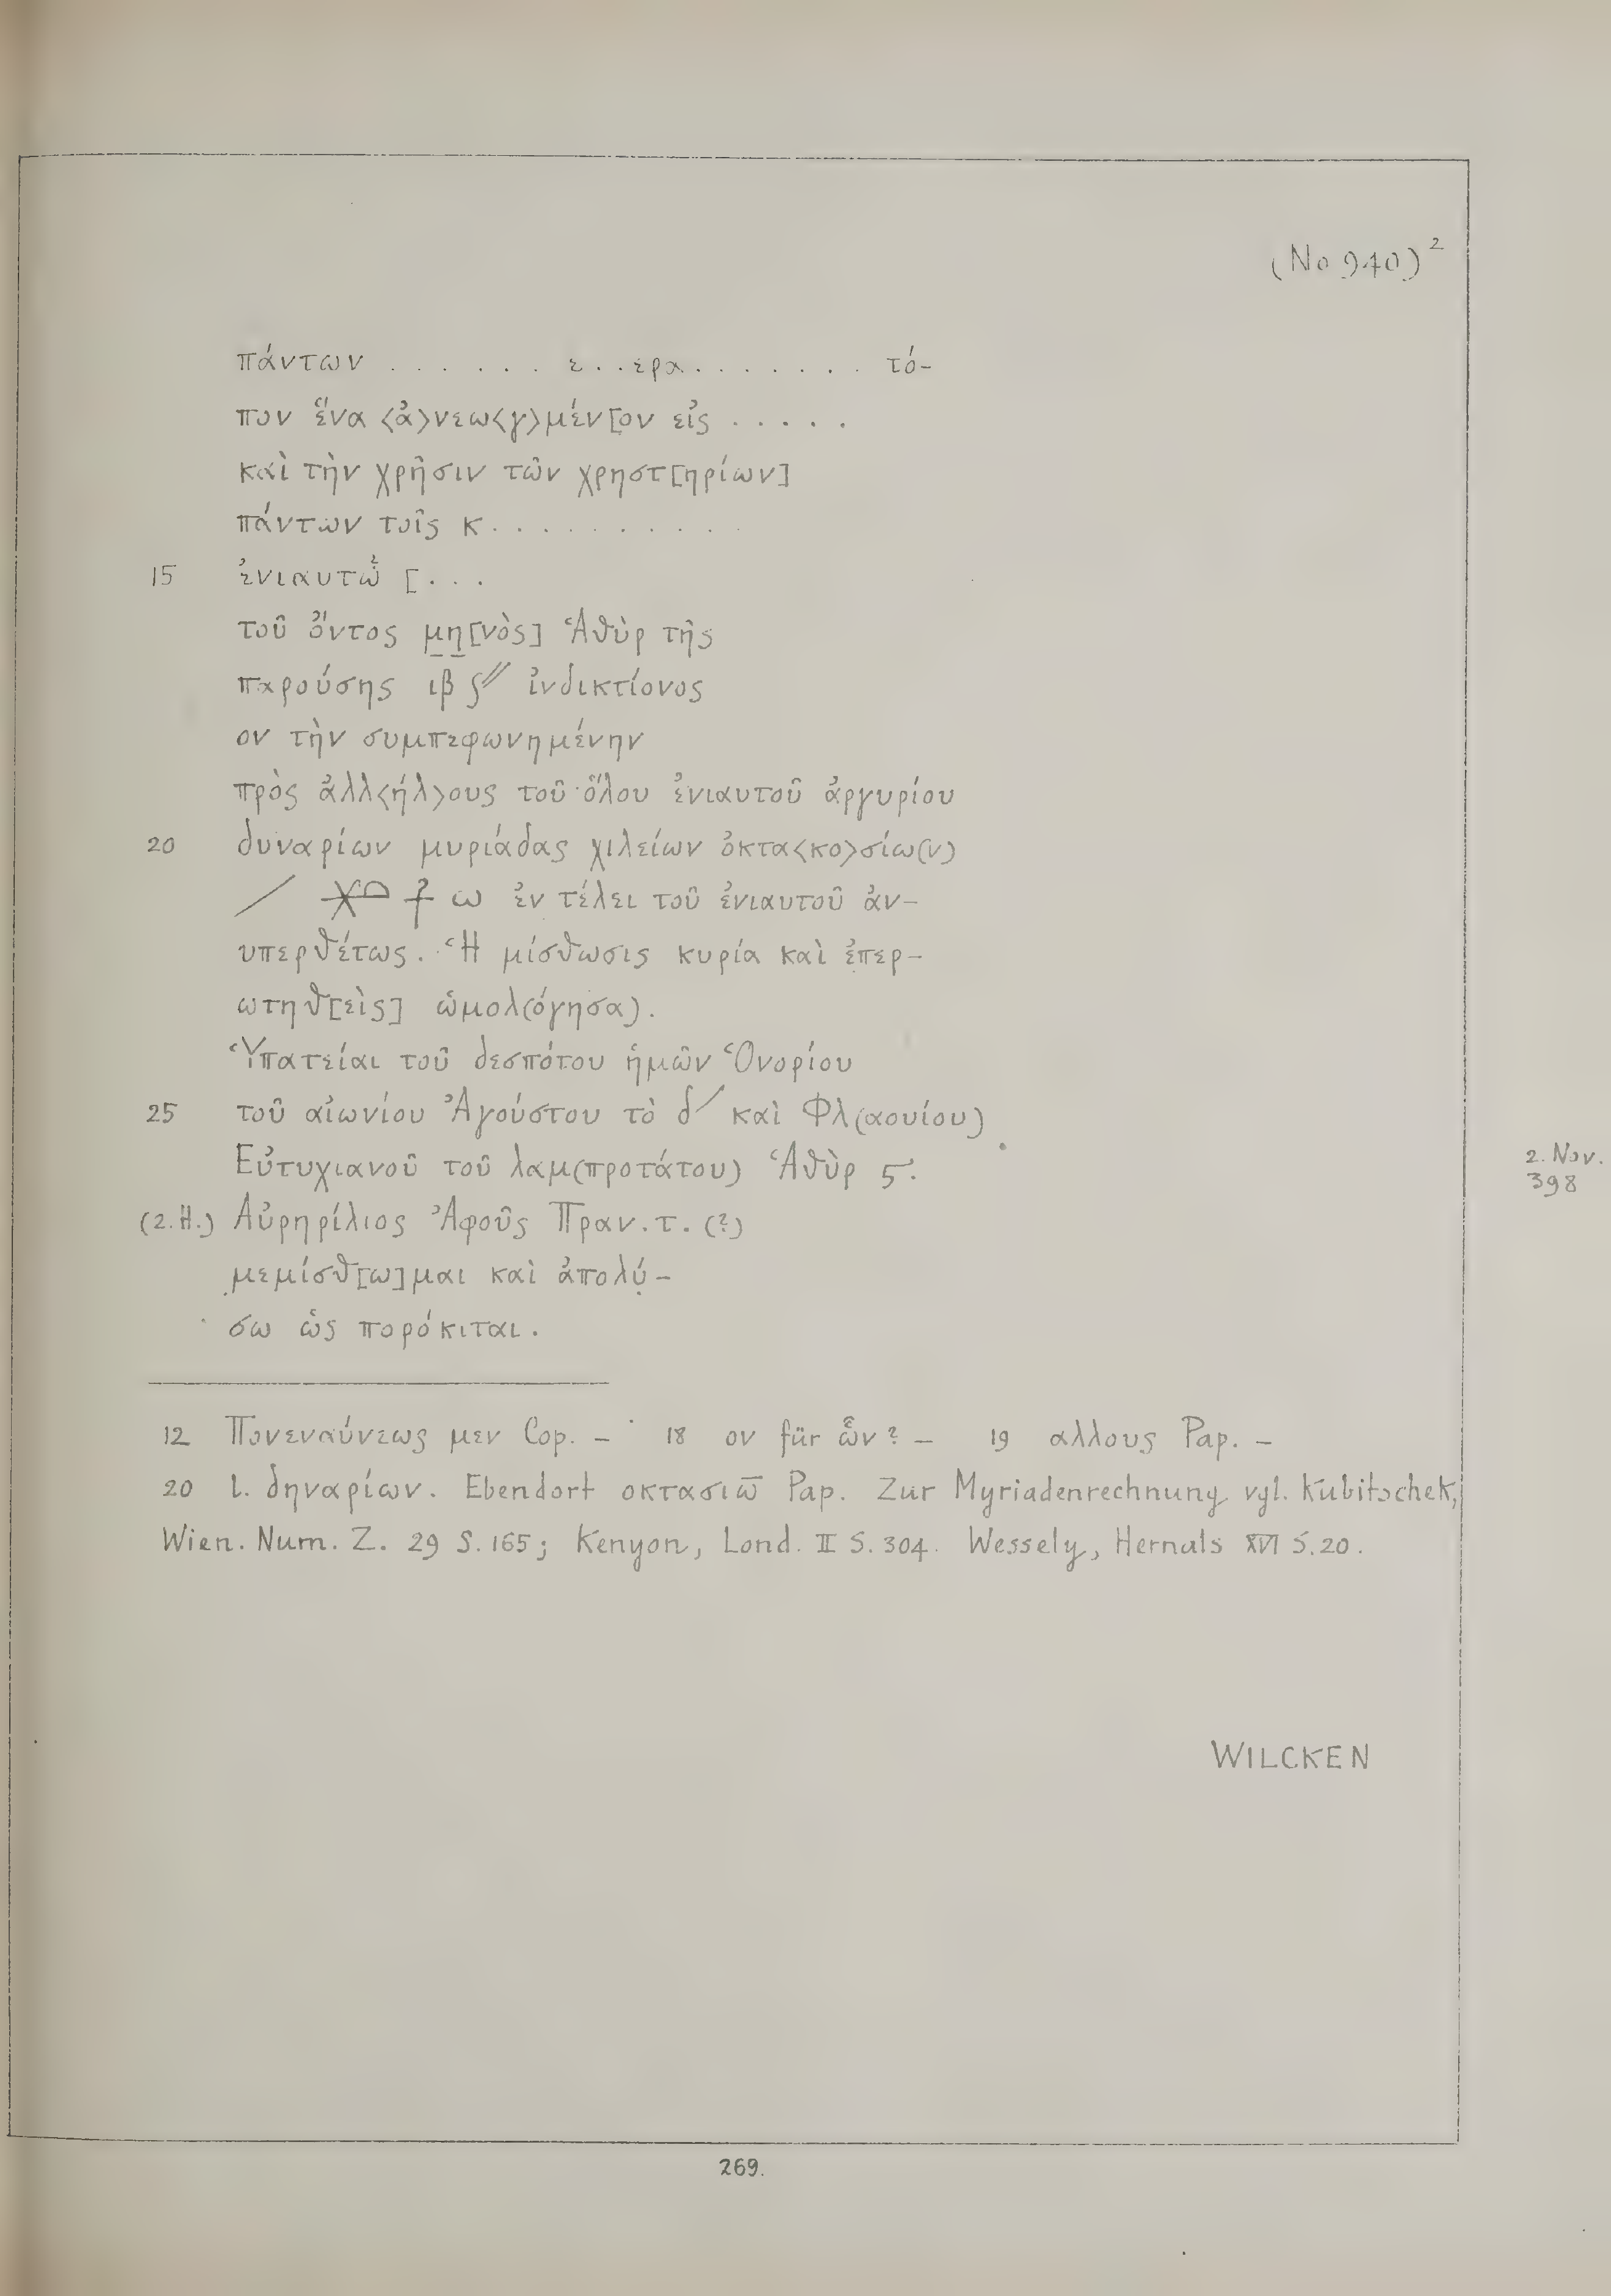 (No 940)²
πάντων . . . . . . ε . . ερα . . . . . . . . τό-
πον ἕνα <ἀ>νεω<γ>μέν[ον εἰς . . . . .
καὶ τὴν χρῆσιν τῶν χρηστ[ηρίων]
πάντων τοῖς κ . . . . . . . . . .
15 ἐνιαυτῷ [ . . .
τοῦ ὄντος μ̲η̲[νὸς] Ἁθὺρ τῆς
παρούσης ιβ ʃ// ἰνδικτίονος
ον τὴν συμπεφωνημένην
πρὸς ἀλλ<ήλ>ους τοῦ ὅλου ἐνιαυτοῦ ἀργυρίου
20 δυναρίων μυριάδας χιλείων ὀκτα<κο>σίω(ν)
/ ω ἐν τέλει τοῦ ἐνιαυτοῦ ἀν-
υπερθέτως. Ἡ μίσθωσις κυρία καὶ ἐπερ-
ωτηθ[εὶς] ὡμολ(όγησα).
Ὑπατείαι τοῦ δεσπότου ἡμῶν Ὁνορίου
25 τοῦ αἰωνίου Ἀγούστου τὸ δ/ καὶ Φλ(αουίου)
Εὐτυχιανοῦ τοῦ λαμ(προτάτου) Ἁθὺρ ϛ.
2. Nov.
398
(2. H.) Αὐρηρίλιος Ἀφοῦς Πραν.τ. (?)
μεμίσθ[ω]μαι καὶ ἀπολύ̣-
σω ὡς πορόκιται.
12 Πονεναύνεως μεν Cop. – 18 ον für ὧν? – 19 αλλους Pap. –
20 l. δηναρίων. Ebendort οκτασιω̅ Pap. Zur Myriadenrechnung vgl. Kubitschek,
Wien. Num. Z. 29 S. 165; Kenyon, Lond. II S. 304. Wessely, Hernals XVI S. 20.
WILCKEN
269.